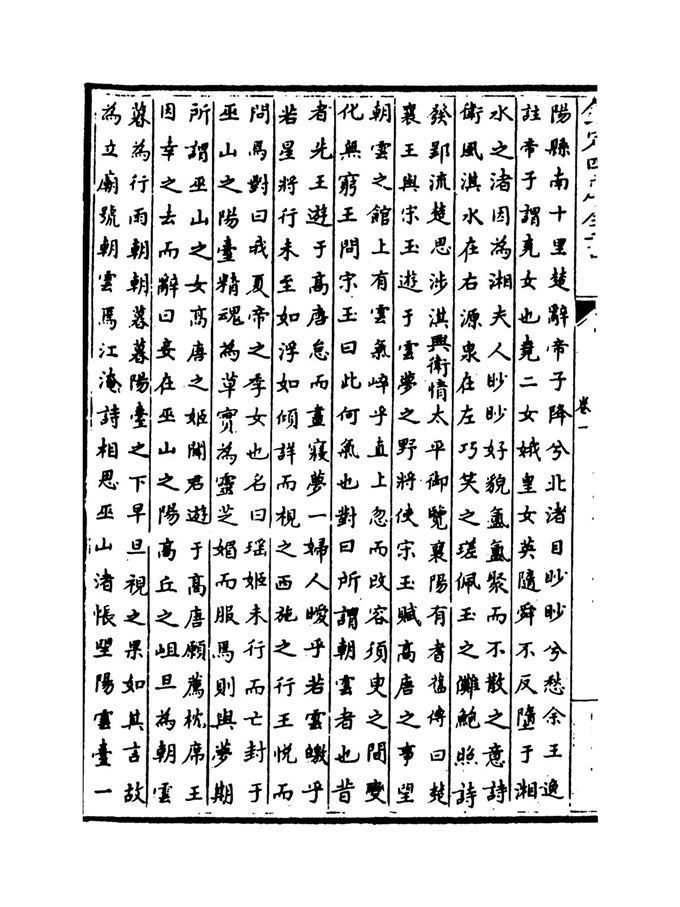 卷一
陽縣南十里楚辭帝子降兮北渚目眇眇兮愁余王逸
註帝子謂堯女也堯二女娥皇女英隨舜不反墮于湘
水之渚因為湘夫人眇眇好貌盫盫聚而不散之意詩
衛風淇水在右源泉在左巧笑之瑳佩玉之儺鮑照詩
發郢流楚思涉淇興衛情太平御覽襄陽有耆舊傳曰楚
襄王與宋玉遊于雲夢之野將使宋玉賦高唐之事望
朝雲之館上有雲氣崪乎直上忽而改容須臾之間變
化無窮王問宋玉曰此何氣也對曰所謂朝雲者也昔
者先王遊于高唐怠而晝寢夢一婦人曖乎若雲皦乎
若星將行未至如浮如傾詳而視之西施之行王悅而
問焉對曰我夏帝之季女也名曰瑤姬未行而亡封于
巫山之陽臺精魂為草實為靈芝媚而服焉則與夢期
所謂巫山之女高唐之姬聞君遊于高唐願薦枕席王
因幸之去而辭曰妾在巫山之陽高丘之岨旦為朝雲
暮為行雨朝朝暮暮陽臺之下早旦視之果如其言故
為立廟號朝雲焉江淹詩相思巫山渚悵望陽雲臺一